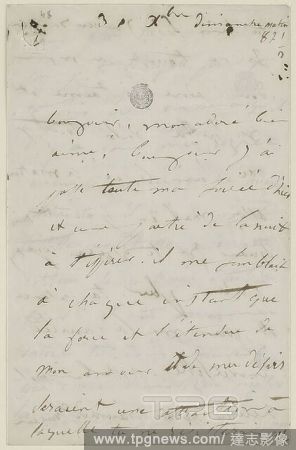 3 Xbre dimanche matin
8 h
bonjour, mon adoré bien
aimé, bonjour j'ai
passé toute ma soirée d'hier
et une partie de la nuit
à t'espérer. il me semblait
à chaque instant que
la force et l'étendue de
mon amour et de mes désirs
seraient une attraction à
laquelle tu ne
TPG
www.tpgnews.com / 達志影像